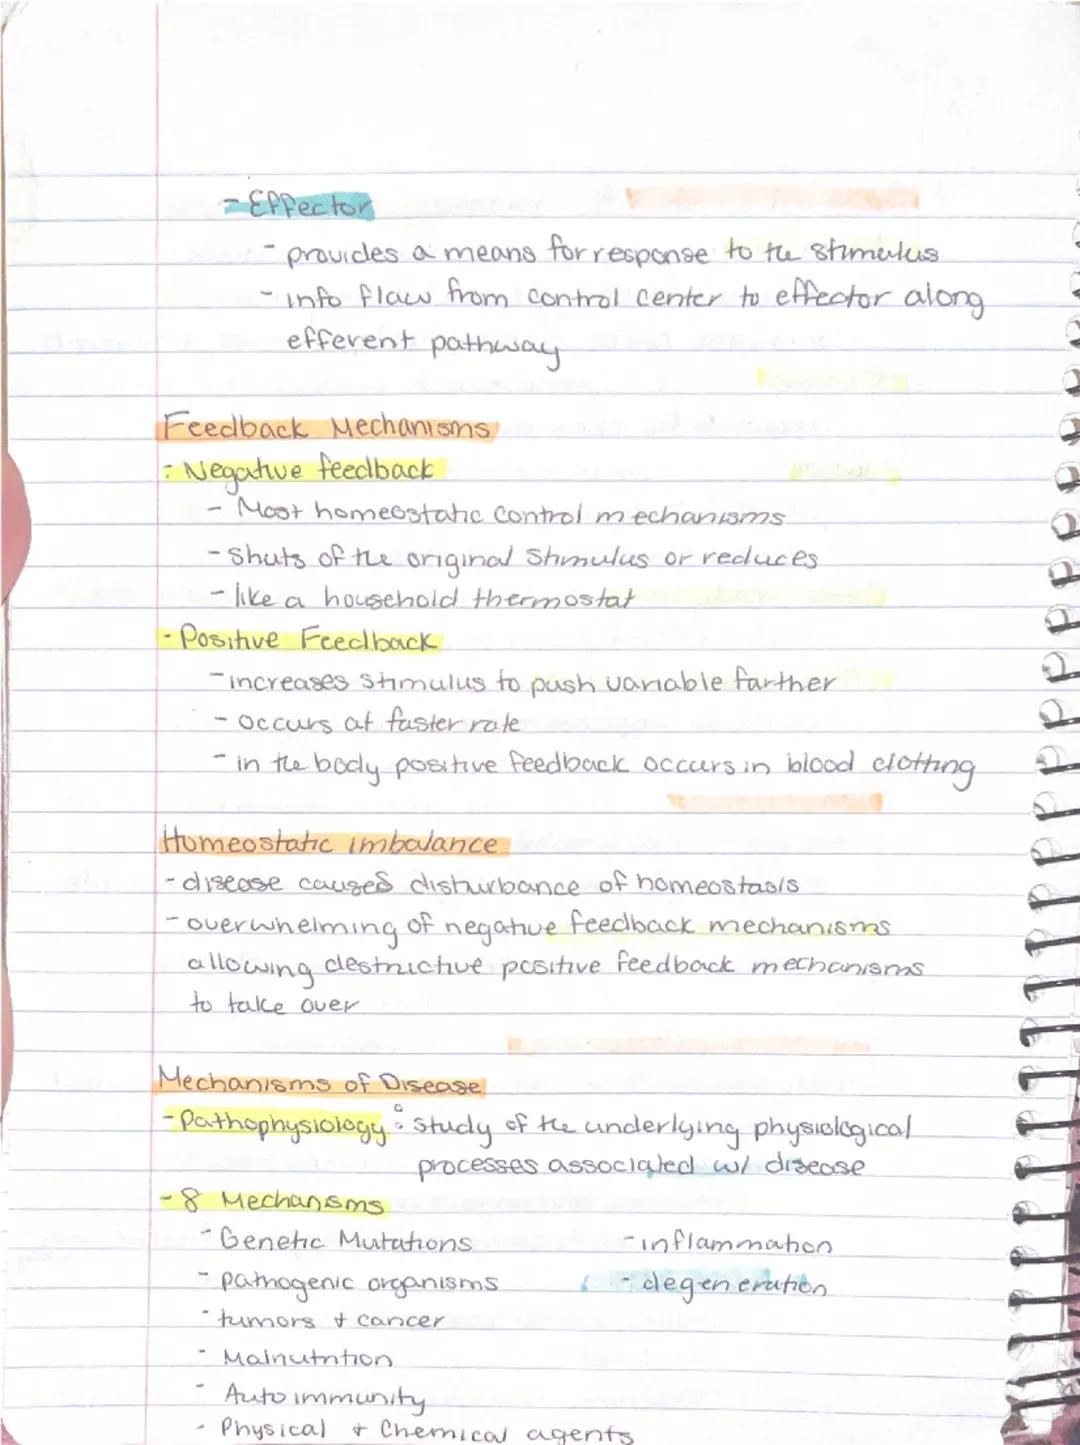 - Effector
- provides a means for response to the stimulus
- info flow from control center to effector along
efferent pathway
Feedback Mechanisms
- Negative feedback
- Most homeostatic control mechanisms
- Shuts of the original stimulus or reduces
- like a household thermostat
- Positive Feedback
- increases stimulus to push variable farther
- occurs at faster rate
- in the body positive feedback occurs in blood clotting
Homeostatic imbalance
- disease causes disturbance of homeostasis
- overwhelming of negative feedback mechanisms
allowing destructive positive feedback mechanisms
to take over
Mechanisms of Disease
- Pathophysiology: study of the underlying physiological
processes associated w/ disease
- 8 Mechanisms
- Genetic Mutations - inflammation
- pathogenic organisms - degeneration
- tumors + cancer
- Malnutrition
- Autoimmunity
- Physical + Chemical agents